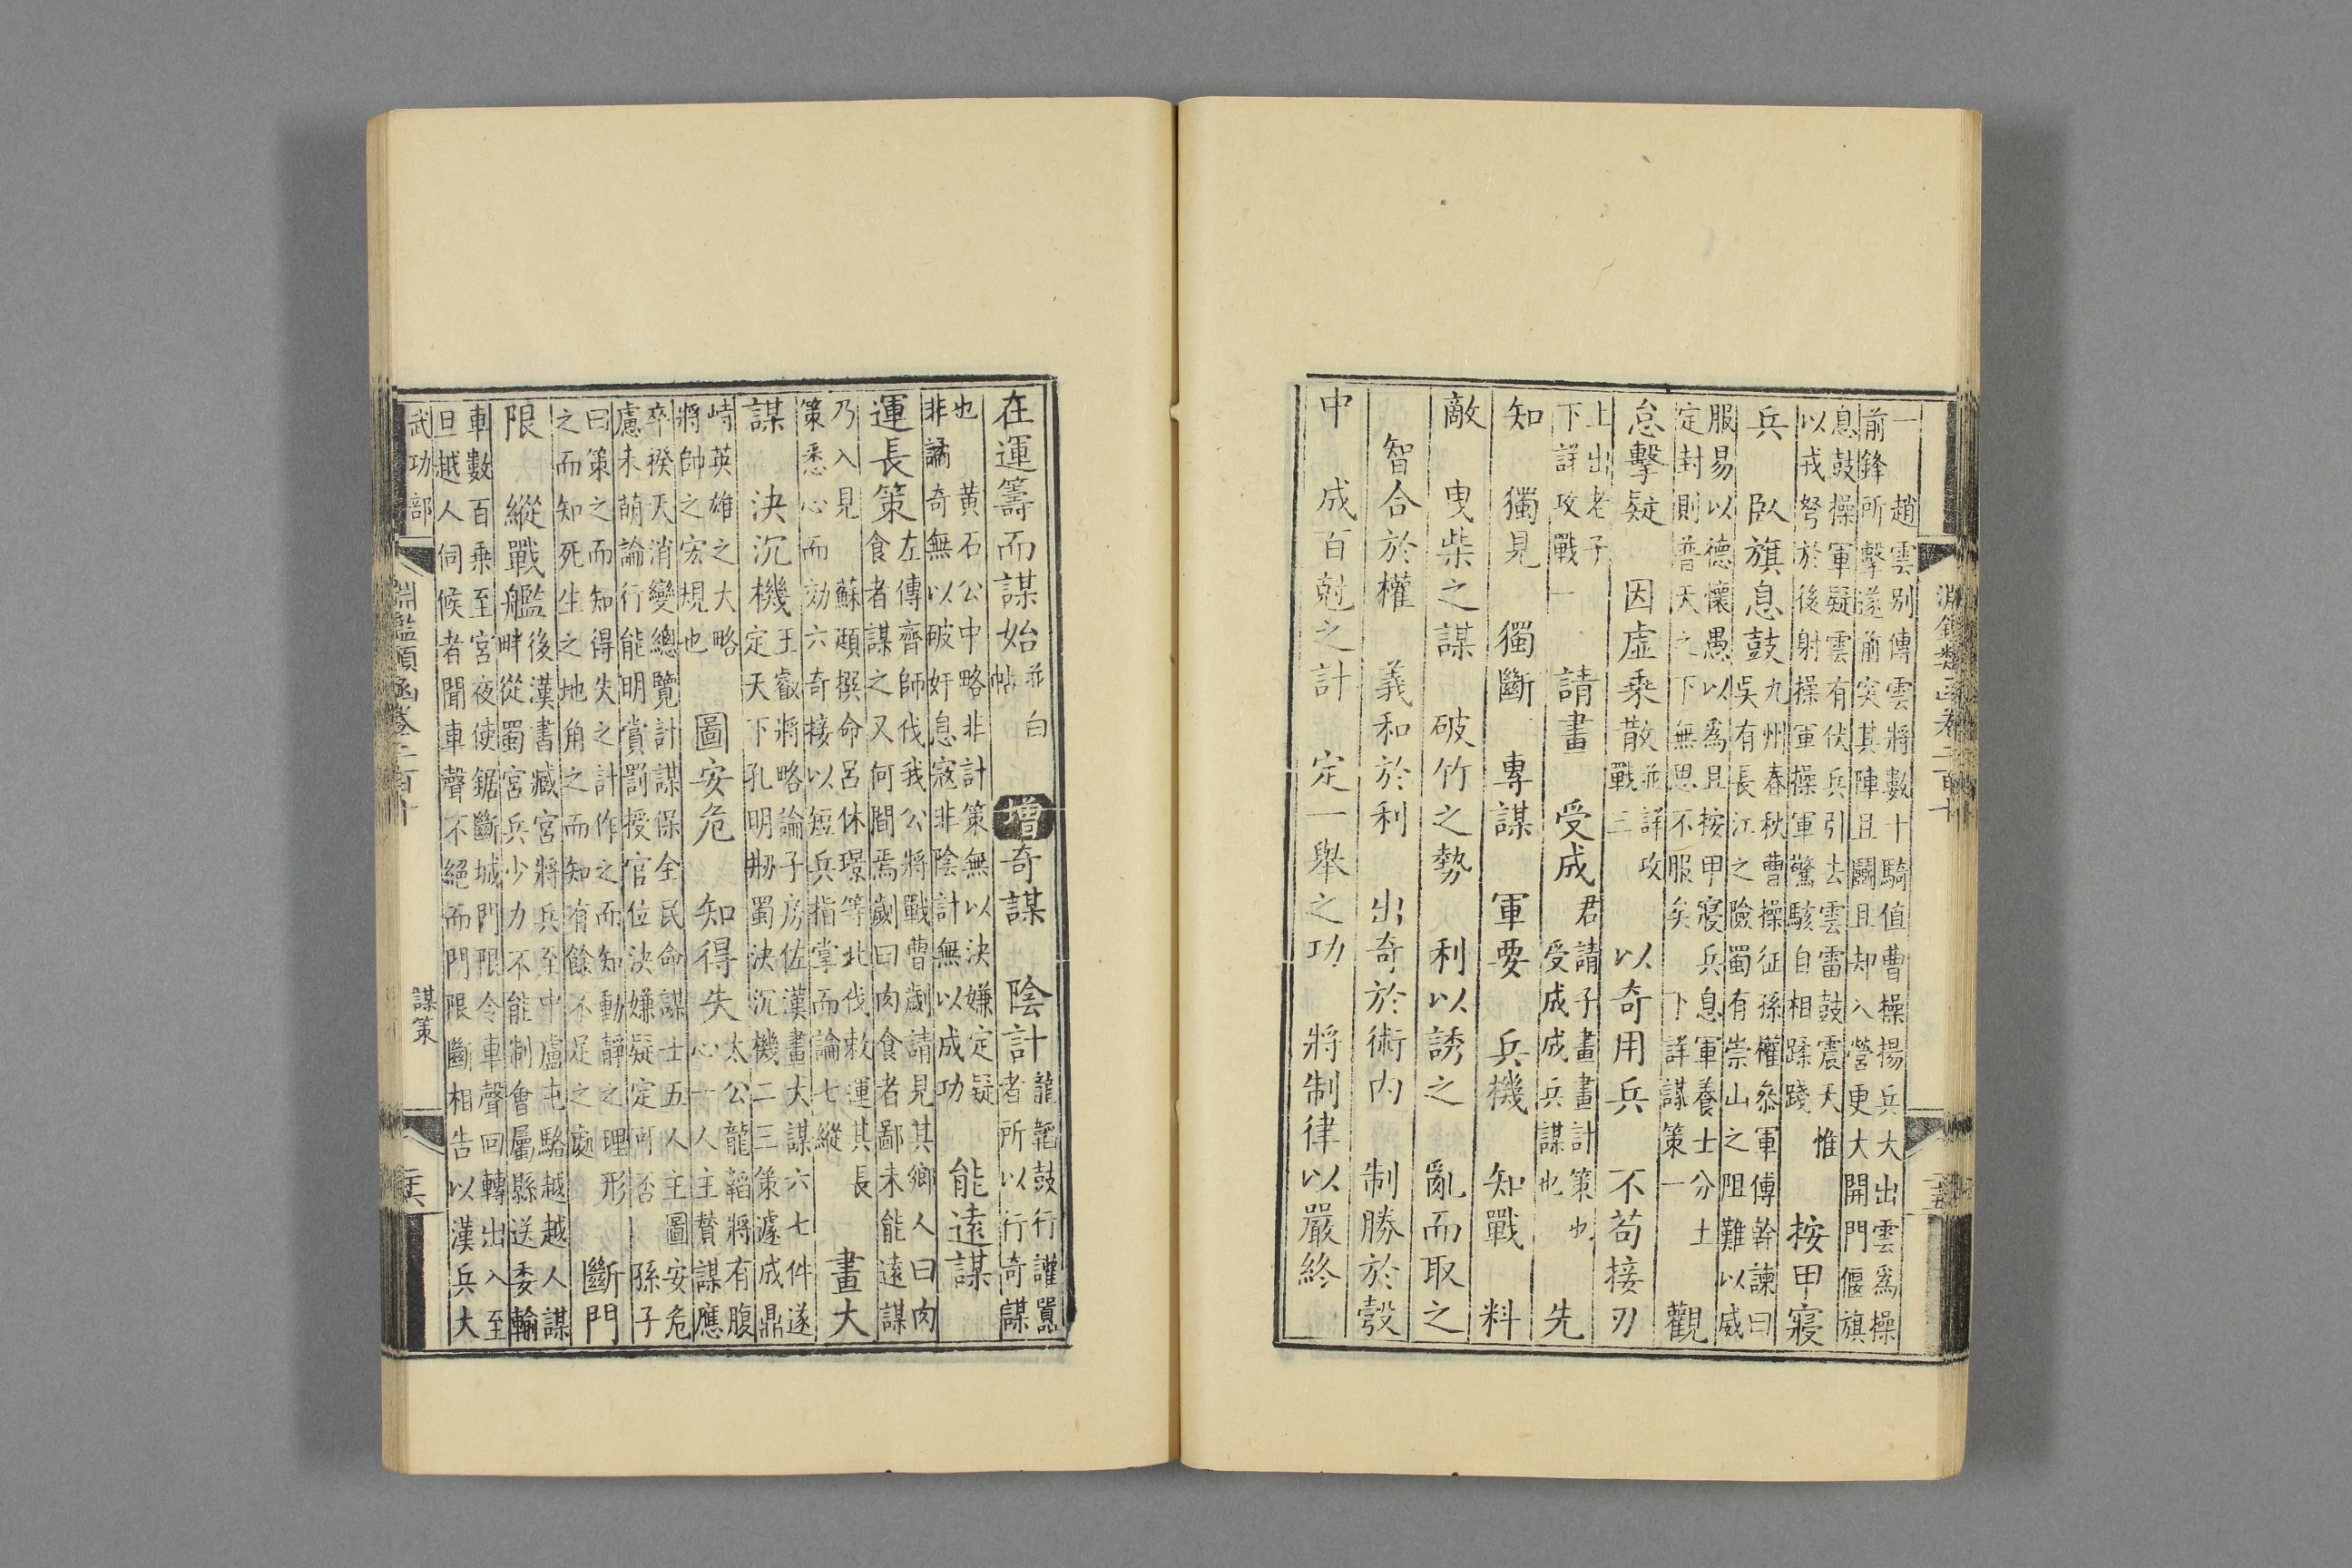 一 趙雲别傳雲將數十騎值曹操揚兵大出雲爲操
前鋒所擊遂前突其陣且鬭且却入營更大開門偃旗
息鼓操軍疑雲有伏兵引去雲雷鼓震天惟
以戎弩於後射操軍操軍驚駭自相蹂踐
按甲寢
兵 臥旗息鼓
九州春秋曹操征孫權叅軍傅幹諫曰
吳有長江之險蜀有崇山之阻難以威
服易以德懷愚以爲且按甲寢兵息軍養士分土
定封則普天之下無思不服矣 下詳謀策一
觀
怠擊疑 因虛乘散
並詳攻
戰三
以奇用兵 不苟接刃
上出老子
下詳攻戰一
請畫 受成
君請子畫畫計策也
受成成兵謀也
先
知 獨見 獨斷 專謀 軍要 兵機 知戰 料
敵 曳柴之謀 破竹之勢 利以誘之 亂而取之
智合於權 義和於利 出奇於術內 制勝於彀
中 成百尅之計 定一舉之功 將制律以嚴終
在運籌而謀始
並白
帖
增奇謀 陰計
龍韜鼓行讙囂
者所以行奇謀
也 黃石公中略非計策無以決嫌定疑
非譎奇無以破奸息寇非陰計無以成功
能遠謀
左傳齊師伐我公將戰曹劌請見其鄉人曰肉
食者謀之又何間焉劌曰肉食者鄙未能遠謀
運長策
乃入見 蘇頲撰命呂休璟等北伐敕運其長
策悉心而効六奇接以短兵指掌而論七縱
畫大
謀 決沉機
王叡將略論子房佐漢畫大謀六七件遂
定天下孔明剏蜀決沉機二三策遽成鼎
峙英雄之大略
將帥之宏規也
圖安危 知得失
太公龍韜將有腹
心一人主贊謀應
卒揆天消變總覽計謀保全民命謀士五人主圖安危
慮未萌論行能明賞罰授官位決嫌疑定可否 孫子
曰策之而知得失之計作之而知動靜之理形
之而知死生之地角之而知有餘不足之處
斷門
限 縱戰艦
後漢書臧宮將兵至中盧屯駱越越人謀
畔從蜀宮兵少力不能制會屬縣送委輸
車數百乘至宮夜使鋸斷城門限令車聲回轉出入至
旦越人伺候者聞車聲不絕而門限斷相告以漢兵大
武功部 淵鑑類函卷二百十 謀策